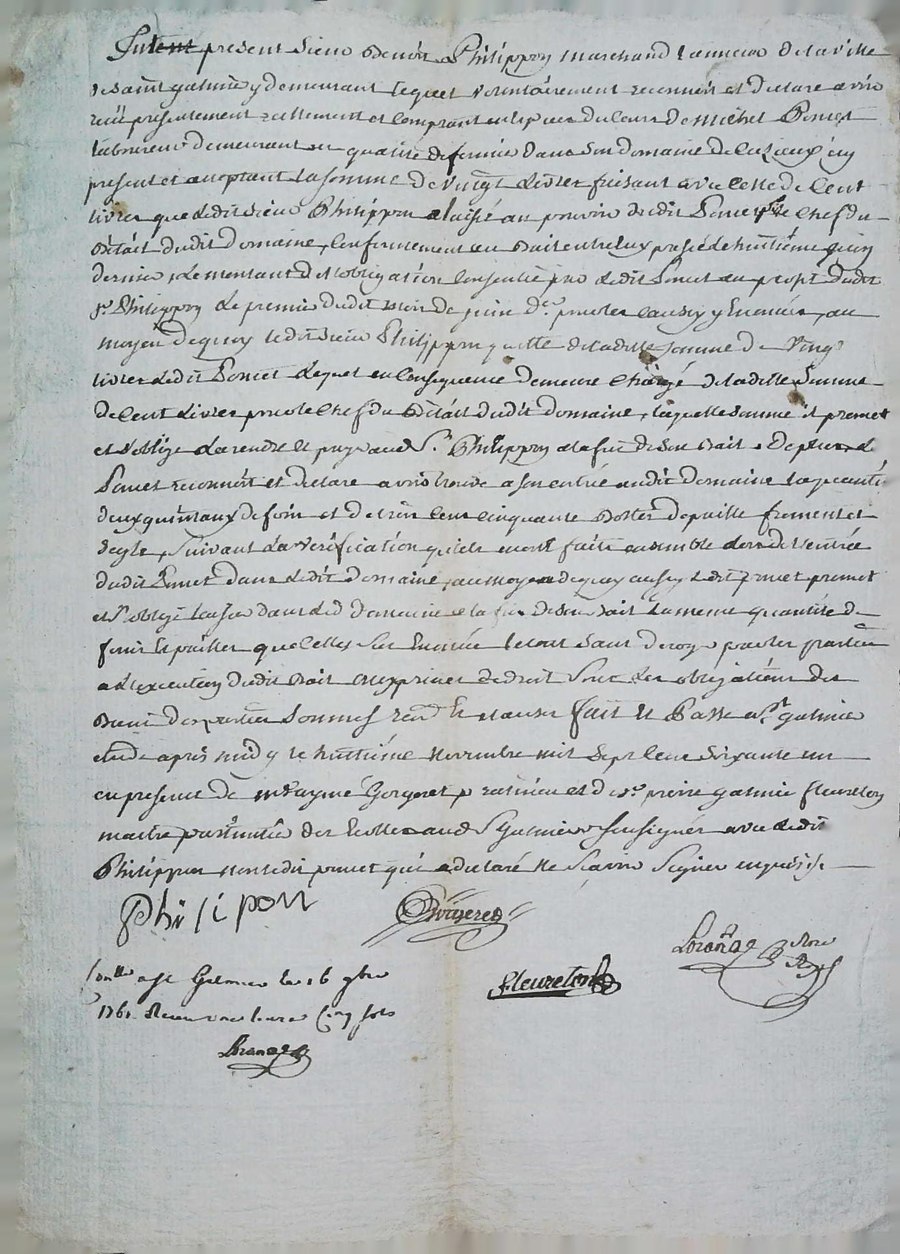 Fut present Sieur Benoit Philippon marchand tanneur de la ville
de saint galmier y demeurant lequel volontairement reconnoit et declare avoir
reçu presentement reellement et comptant en especes du cours de michel Poncet
laboureur demeurant en qualité de fermier dans son domaine de
present et acceptant la somme de vingt livres faisant avec celle de cent
livres que ledit sieur Philippon a laissé au pouvoir dudit Poncet le chef du
Bétail dudit domaine, conformement au Bail entre eux passé le huitième juin
dernier, le montant de l'obligation consentie par ledit Poncet au profit dudit
Sr Philippon le premier dudit mois de juin d.er pour les causes y Enoncées, au
moyen dequoy ledit sieur Philippon quitte de ladite somme de vingt
livres ledit Poncet lequel en Consequence demeure Chargé de ladite Somme
de Cent Livres pour le Chef du Bétail dudit domaine, laquelle somme il promet
et s'oblige de rendre et payer aud Sr. Philippon a la fin de son Bail Deplus le
Poncet reconnoit et declare avoir trouvé a son entrée audit domaine la quantité
deux quintaux de foin et de cent cinquante Bottes de paille froment et
Segle, Suivant la vérification qu'ils en ont faite ensemble lors de l'entrée
dudit Poncet dans ledit domaine, au moyen dequoy aussy ledit poncet promet
et s'oblige laisser dans led domaine a la fin de son Bail la meme quantité de
foin et pailles que celles sus Enoncée le tout sans deroger par les parties
a l'execution dudit Bail et expriver de droit Sous les obligations des
Biens des parties Soumis. ren.on et clauses fait et Passé a S.t galmier
etude après midy le huitième Novembre mil Sept Cent Soixante un
en presence de m.e aymé Gorgeret praticien et de s.r pierre galmier fleureton
maitre des Ecolles aud S.t Galmier soussignés avec ledit
Philippon non ledit poncet qui a declaré ne Scavoir Signer enquis.
Philipon
Fleureton
Lorange Nore Royal
Con.lle a St Galmier le 16 9bre
1761. Recu une livre Cinq sols
Lorange